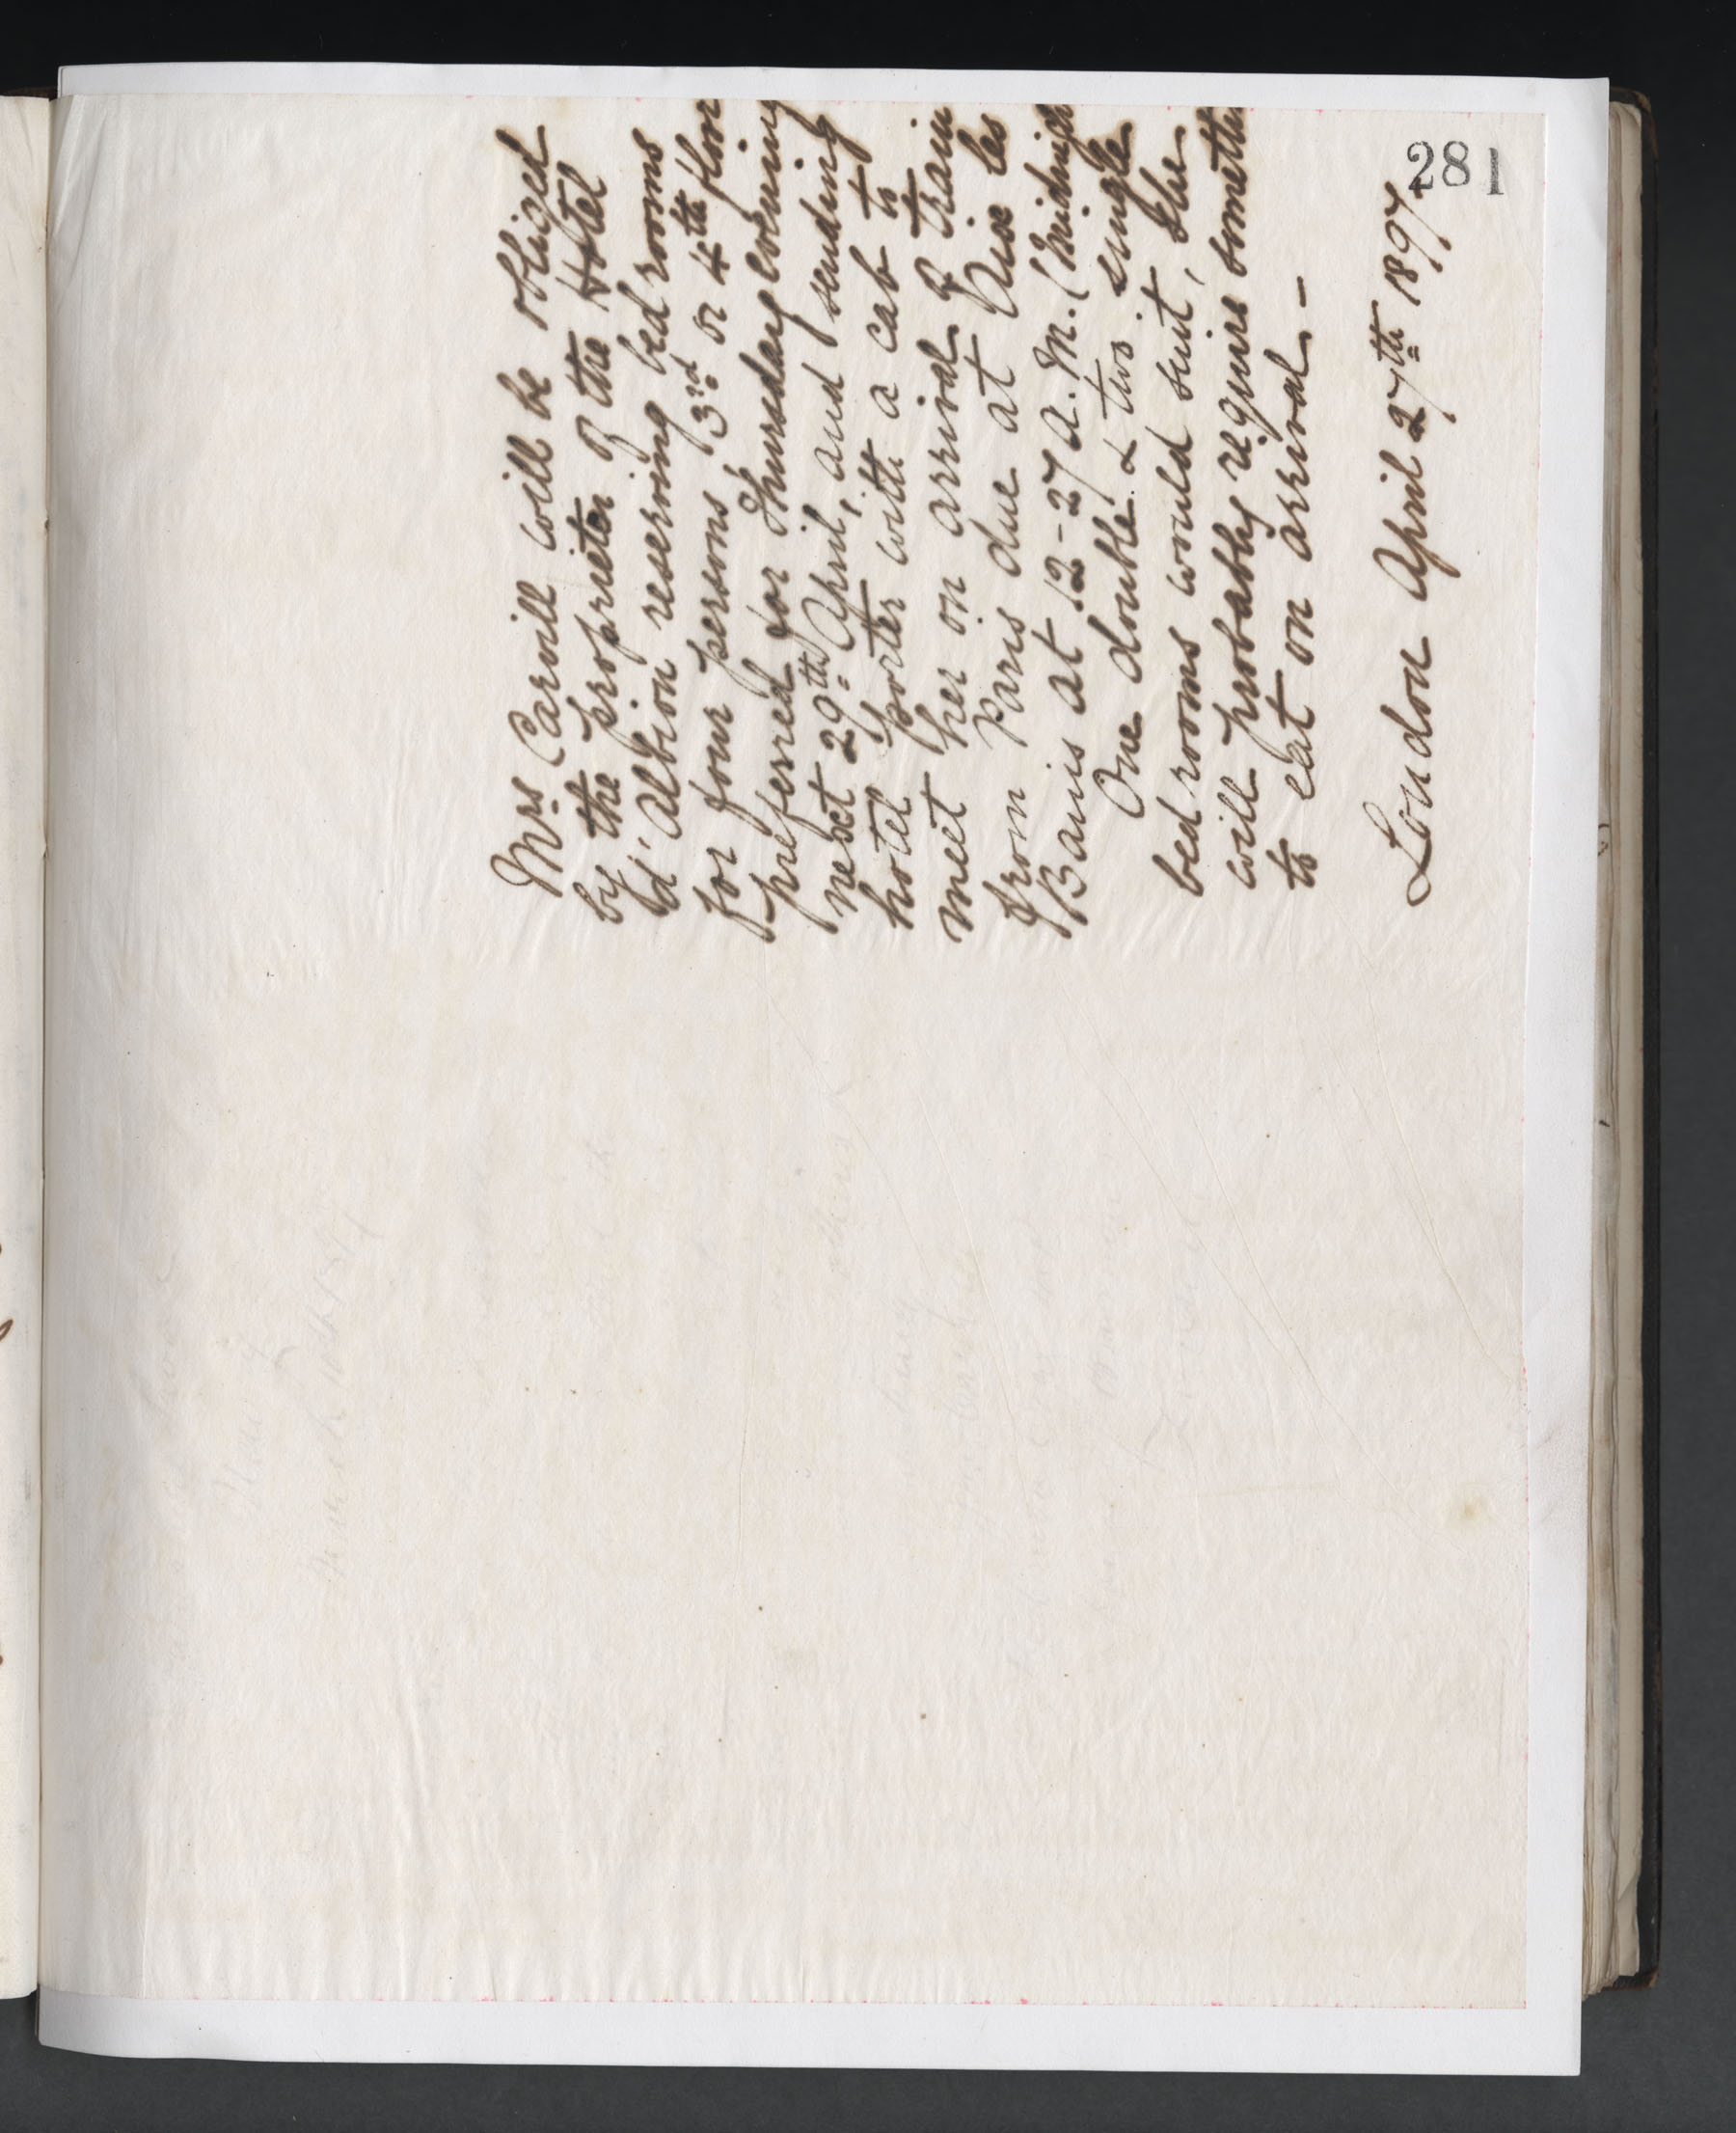 281
Mrs Carvill will be obliged
by the proprietor of the Hotel
d'Albion reserving bed rooms
for four persons 3rd or 4th floor
preferred for Thursday evening
next 29th April, and sending
hotel porter with a cab to
meet her on arrival of train
from Paris due at Aix les
Bains at 12-27 A.M. (Midnigh
One double & two single
bed rooms would suit, She
will probably require somethin
to eat on arrival -
London April 27th 1897.